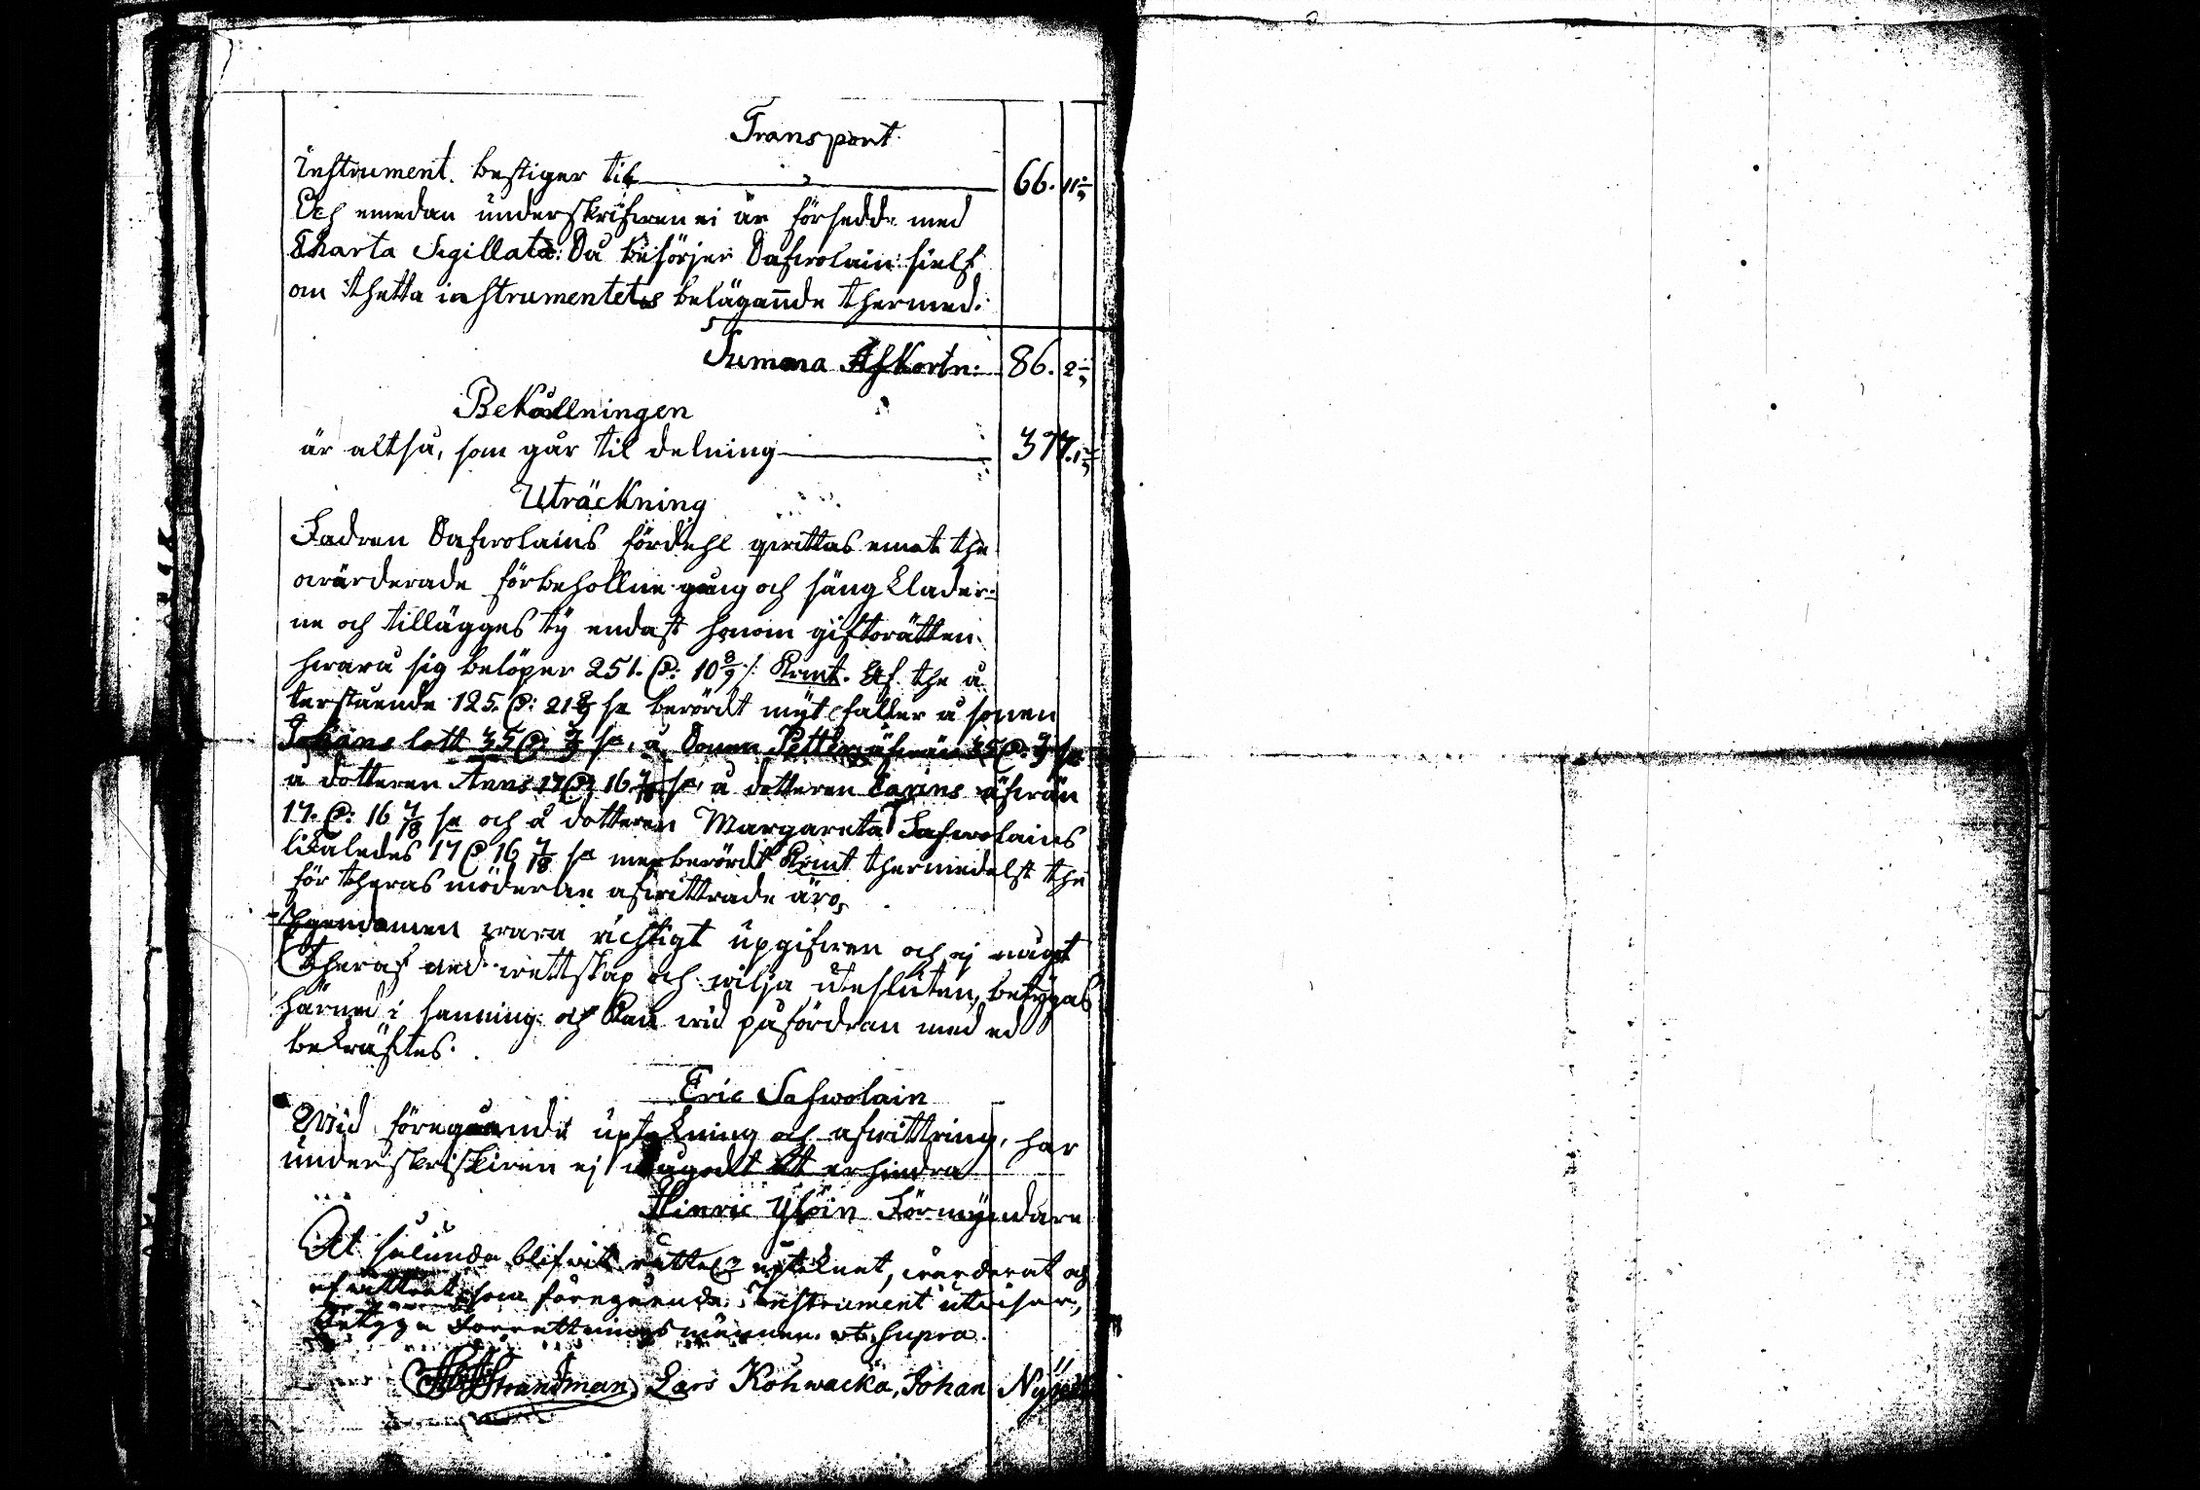 Transport
instrument. bestiger til 66. 11
Och emedan underskrifwen ei är försedd med
Charta Sigillata: Då besörjer Safwolain sielf
om thetta instrumentets belägande thermed.
Summa Afkortn: 86. 2
Behållningen
är altså, som går til delning 377. 1
Uträckning
Fadren Safwolains fördehl qwittas emot the
owärderade förbehollne gång och säng klader-
ne och tillägges ty endast honom giftorätten
hwara sig belöper 251. 10 8/9 /: Kmt. Af the å
terstående 125. 21 sr berördt mÿt faller å sonen
Johans lott 35 sr, å Sonen Petters äfwän 35 sr
å dotteren Annas 17 16 7/18 sr, å dotteren Carins äfwän
17. 16 7/18 sr och å dotteren Margareta Safwolains
likaledes 17 16 7/18 sr merberördt Kmt thermedelst the
för theras möderne afwittrade äro,
Egendomen wara richtigt upgifwen och ej något
theraf med wettskap och wilja utesluten, betygas
härmed i sanning och kan wid påfordran med ed
bekräftes.
Eric Safwolain
Wid föregående uptekning och afwittring, har
underskrifwen ej något at erhindra
Hinric Ylöin Förmÿndare
At sålunda blifwit rätte upteknat, wärderat och
afwittrat, som föregående Instrument utwisar,
betyga Förrettningsmännen ut supra.
Strandman, Lars Kohwacka, Johan